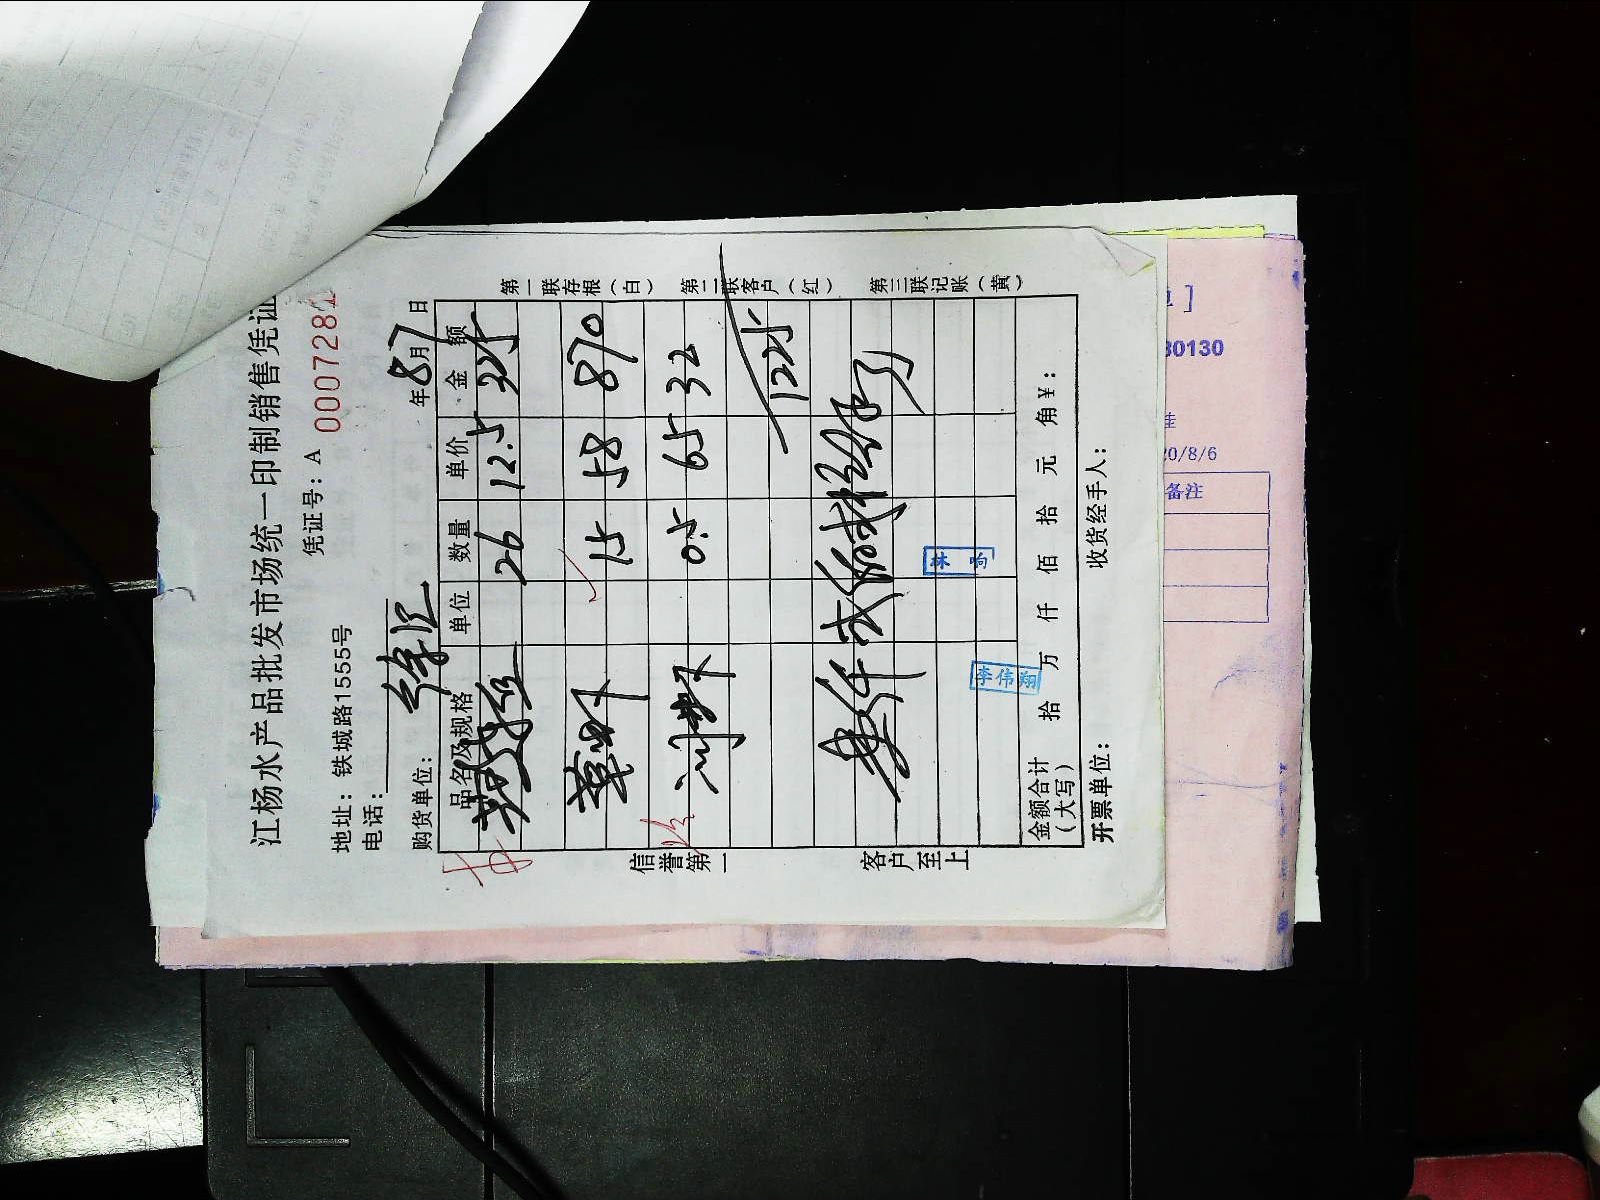 江杨水产品批发市场统一印制销售凭证
地址：铁城路1555号
凭证号：A 000728
电话：
购货单位：
年8月7日
品名及规格 单位 数量 单价 金额
26 12.5 325
草虾 15 58 870
0.5 65 32
1225
金额合计（大写） 拾 万 仟 佰 拾 元 角 ￥：
开票单位：
收货经手人：
第一联存根（白）
第二联客户（红）
第三联记账（黄）
信誉第一
客户至上
李伟翔
30130
20/8/6
备注